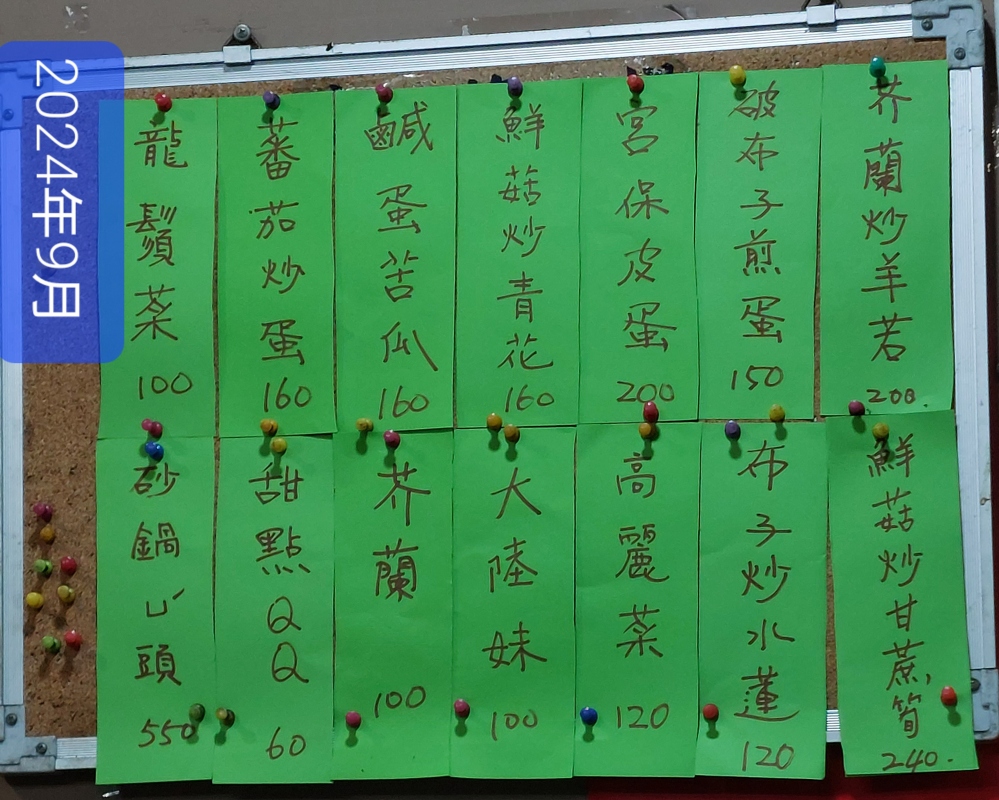 2024年9月
芥蘭炒羊若
200.
破布子煎蛋
150
宮保皮蛋
200
鮮菇炒青花
160
鹹蛋苦瓜
160
蕃茄炒蛋
160
龍鬚菜
100
鮮菇炒甘蔗筍
240.
布子炒水蓮
120
高麗菜
120
大陸妹
100
芥蘭
100
甜點QQ
60
砂鍋ㄩˊ頭
550